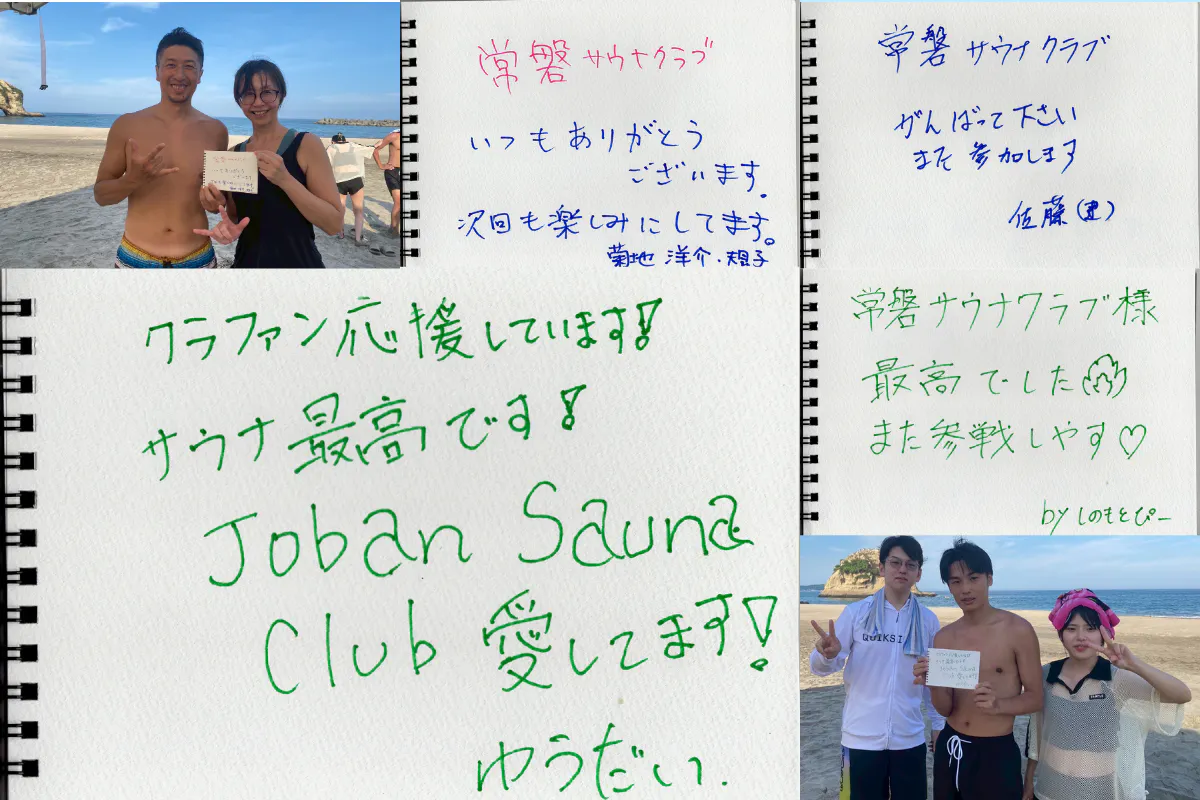 常磐サウナクラブ
いつもありがとう
ございます.
次回も楽しみにしてます。
菊地 洋介・規子
常磐サウナクラブ
がんばって下さい
また参加します
佐藤(建)
クラファン応援しています!
サウナ最高です!
Joban Sauna
Club 愛してます!
ゆうだい.
常磐サウナクラブ様
最高でした
また参戦しやす♡
by しのもとぴー
QUIKSI